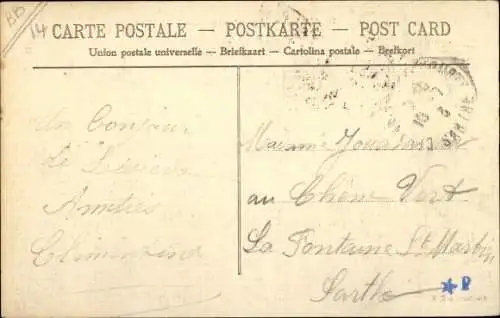 14
CARTE POSTALE — POSTKARTE — POST CARD
Union postale universelle — Briefkaart — Cartolina postale — Brefkort
SARTHE
Un Bonjour
de Lisieux
Amitiés
Clémentine
Madame
au Chêne Vert
La Fontaine St Martin
Sarthe